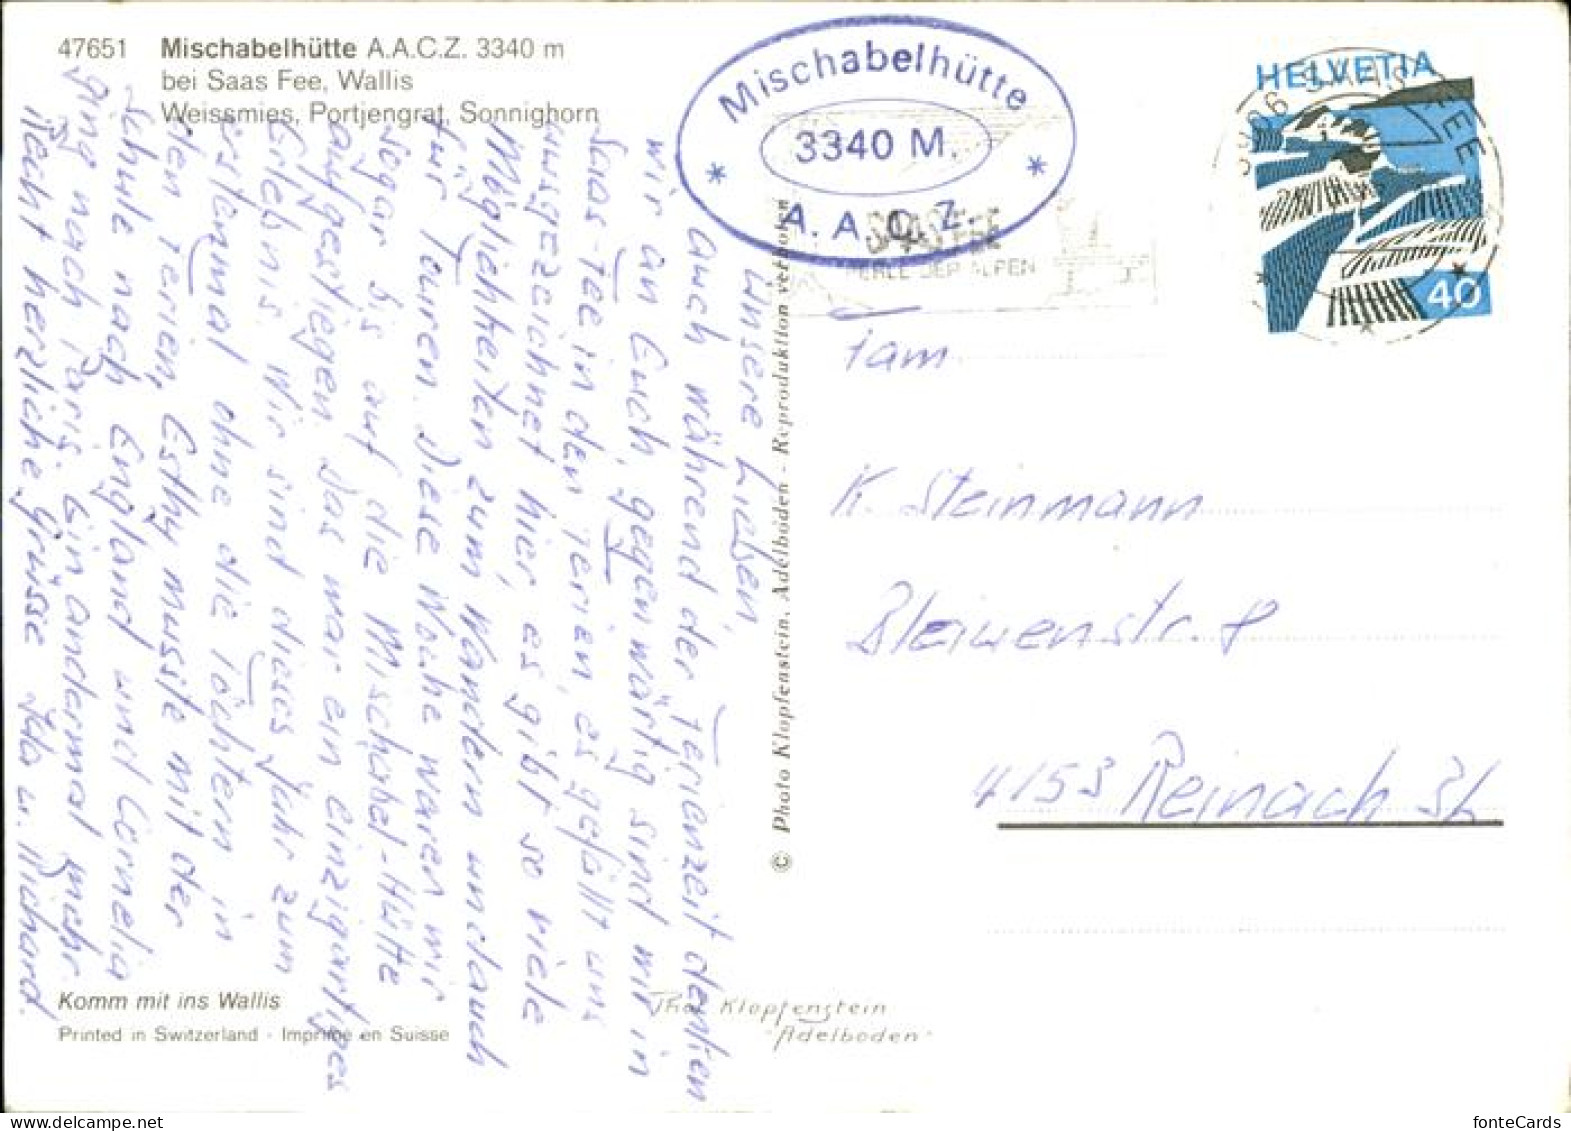 47651 Mischabelhütte A.A.C.Z. 3340 m
bei Saas Fee, Wallis
Weissmies, Portjengrat, Sonnighorn
Mischabelhütte
3340 M.
* A. A. C. Z. *
SAAS-FEE
PERLE DER ALPEN
3906 SAAS-FEE
HELVETIA
40
Unsere Lieben,
auch während der Ferienzeit denken
wir an Euch, gegenwärtig sind wir in
Saas-Fee in den Ferien, es gefällt uns
ausgezeichnet hier, es gibt so viele
Möglichkeiten zum Wandern und auch
für Touren. Diese Woche waren wir
sogar bis auf die Mischabel-Hütte
aufgestiegen. Das war ein einzigartiges
Erlebnis. Wir sind dieses Jahr zum
erstenmal ohne die Töchtern in
den Ferien, Esthy musste mit der
Schule nach England und Cornelia
ging nach Paris. Ein andermal mehr.
Recht herzliche Grüsse Ida u. Richard.
© Photo Klopfenstein, Adelboden - Reproduktion verboten
Fam
K. Steinmann
Bleiwenstr. 8
4153 Reinach BL
Komm mit ins Wallis
Printed in Switzerland - Imprimé en Suisse
Phot Klopfenstein
"Adelboden"
fonteCards